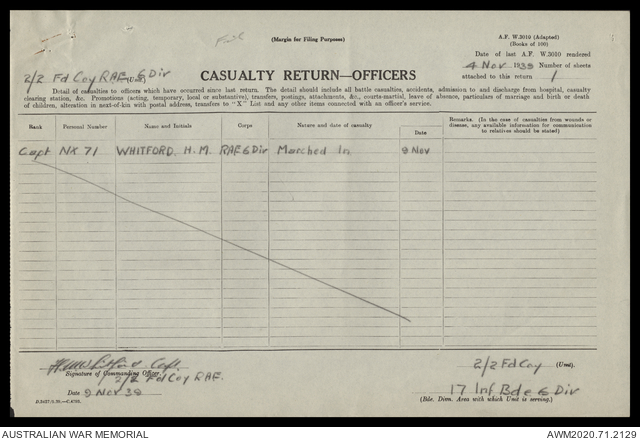 (Margin for Filing Purposes)
A.F. W.3010 (Adapted)
(Books of 100)
Date of last A.F. W.3010 rendered
4 Nov 1939 Number of sheets
attached to this return 1
2/2 Fd Coy RAE 6 Div
(Unit)
CASUALTY RETURN—OFFICERS
Detail of casualties to officers which have occurred since last return. The detail should include all battle casualties, accidents, admission to and discharge from hospital, casualty
clearing station, &c. Promotions (acting, temporary, local or substantive), transfers, postings, attachments, &c., courts-martial, leave of absence, particulars of marriage and birth or death
of children, alteration in next-of-kin with postal address, transfers to "X" List and any other items connected with an officer's service.
Rank Personal Number Name and Initials Corps Nature and date of casualty Date Remarks. (In the case of casualties from wounds or disease, any available information for communication to relatives should be stated)
Capt NX 71 WHITFORD. H. M. RAE 6 Div Marched In 9 Nov
Capt.
Signature of Commanding Officer
2/2 Fd Coy RAE.
Date 9 Nov 39
2/2 Fd Coy (Unit).
17 Inf Bde 6 Div
(Bde. Divn. Area with which Unit is serving.)
AUSTRALIAN WAR MEMORIAL
AWM2020.71.2129